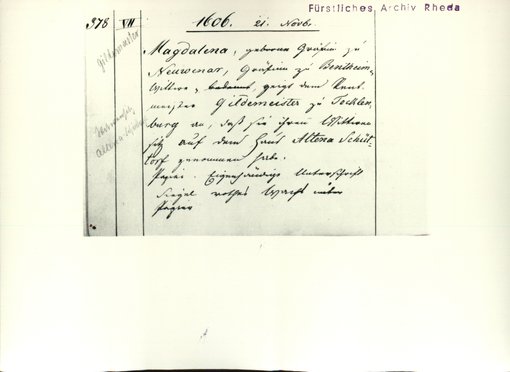 Fürstliches Archiv Rheda
378 VII 1606. 21. Novb.
Gildemeister
Magdalena, geborene Gräfin zu
Neuwenar, Gräfinn zu Bentheim,
Wittwe, zeigt dem Rent-
meister Gildemeister zu Tecklen-
burg an, daß sie ihren Wittwen
sitz auf dem Haus Altena Schüt-
torf genommen habe.
Papier. Eigenhändige Unterschrift
Siegel rothes Wachs unter
Papier